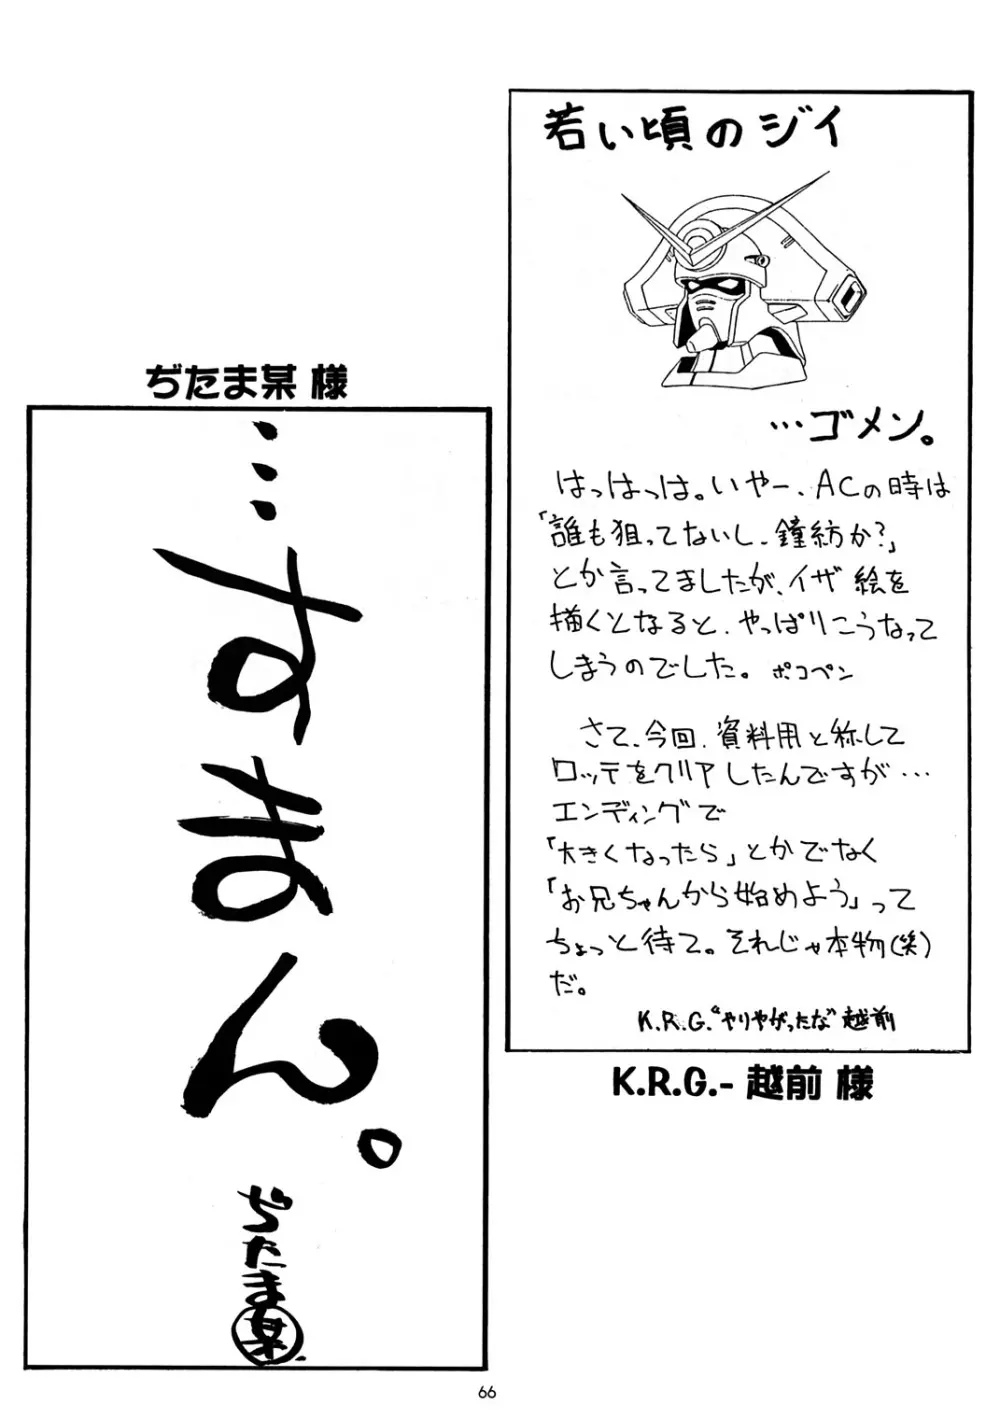 若い頃のジイ
…ゴメン。
はっはっは。いやー、ACの時は
「誰も狙ってないし、鐘紡か?」
とか言ってましたが、イザ 絵を
描くとなると、やっぱりこうなって
しまうのでした。ポコペン
さて、今回、資料用と称して
ロッテをクリアしたんですが…
エンディングで
「大きくなったら」とかでなく
「お兄ちゃんから始めよう」って
ちょっと待て。それじゃ本物(笑)
だ。
K.R.G.“やりやがったな”越前
K.R.G.- 越前 様
ぢたま某 様
…すまん。
ぢたま某
66